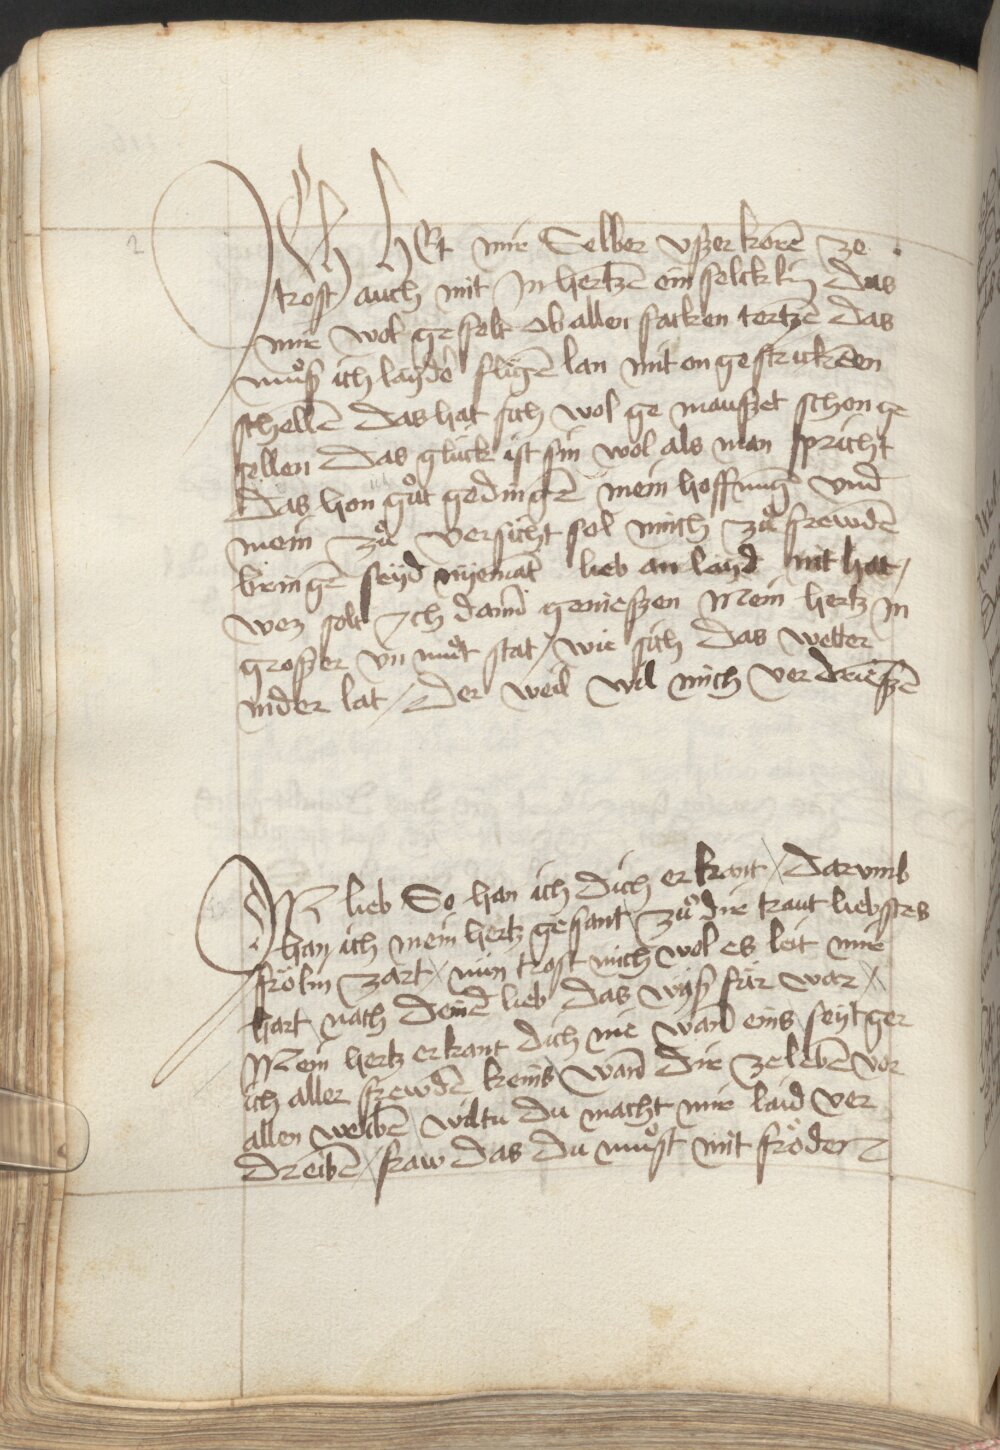 Ich hett mir Selber vßer korē ze
trost auch mit In hertzē ein felcklin das
mir wol gefelt ob allen facken tertzē das
muͦß ich layder fligē lan mit on gestrickēden
schellē das hat sich wol ge maußet schon ge
sellen das gluck ist sin wol als man spricht
Das hon ich guͦt gedingē mein hoffnung vnd
mein zuͦ versicht sol mich zuͦ frewdē
bringē seyd nyemāt lieb an layd nit hat /
wez solt Ich dann̄ genießen Mein hertz in
großer vn muͦt stat / wie sich das wetter
nider lat / Der weil wil mich ver drießē
Mī lieb So han ich dich er kant / Darvmb
han ich mein hertz gesant zuͦ dir traut liebstes
frölin zart / nun trost mich wol es leit mir
hart nach deinē lieb das wäß für war /
Mein hertz erkant dich nie wan̄ eins seyt ger
ich aller frewdē keins / wan̄ dir ze lebē vor
allen weibē wiltu du macht mir laid ver
dreibē / fraw das du muͦst mit fröder
2